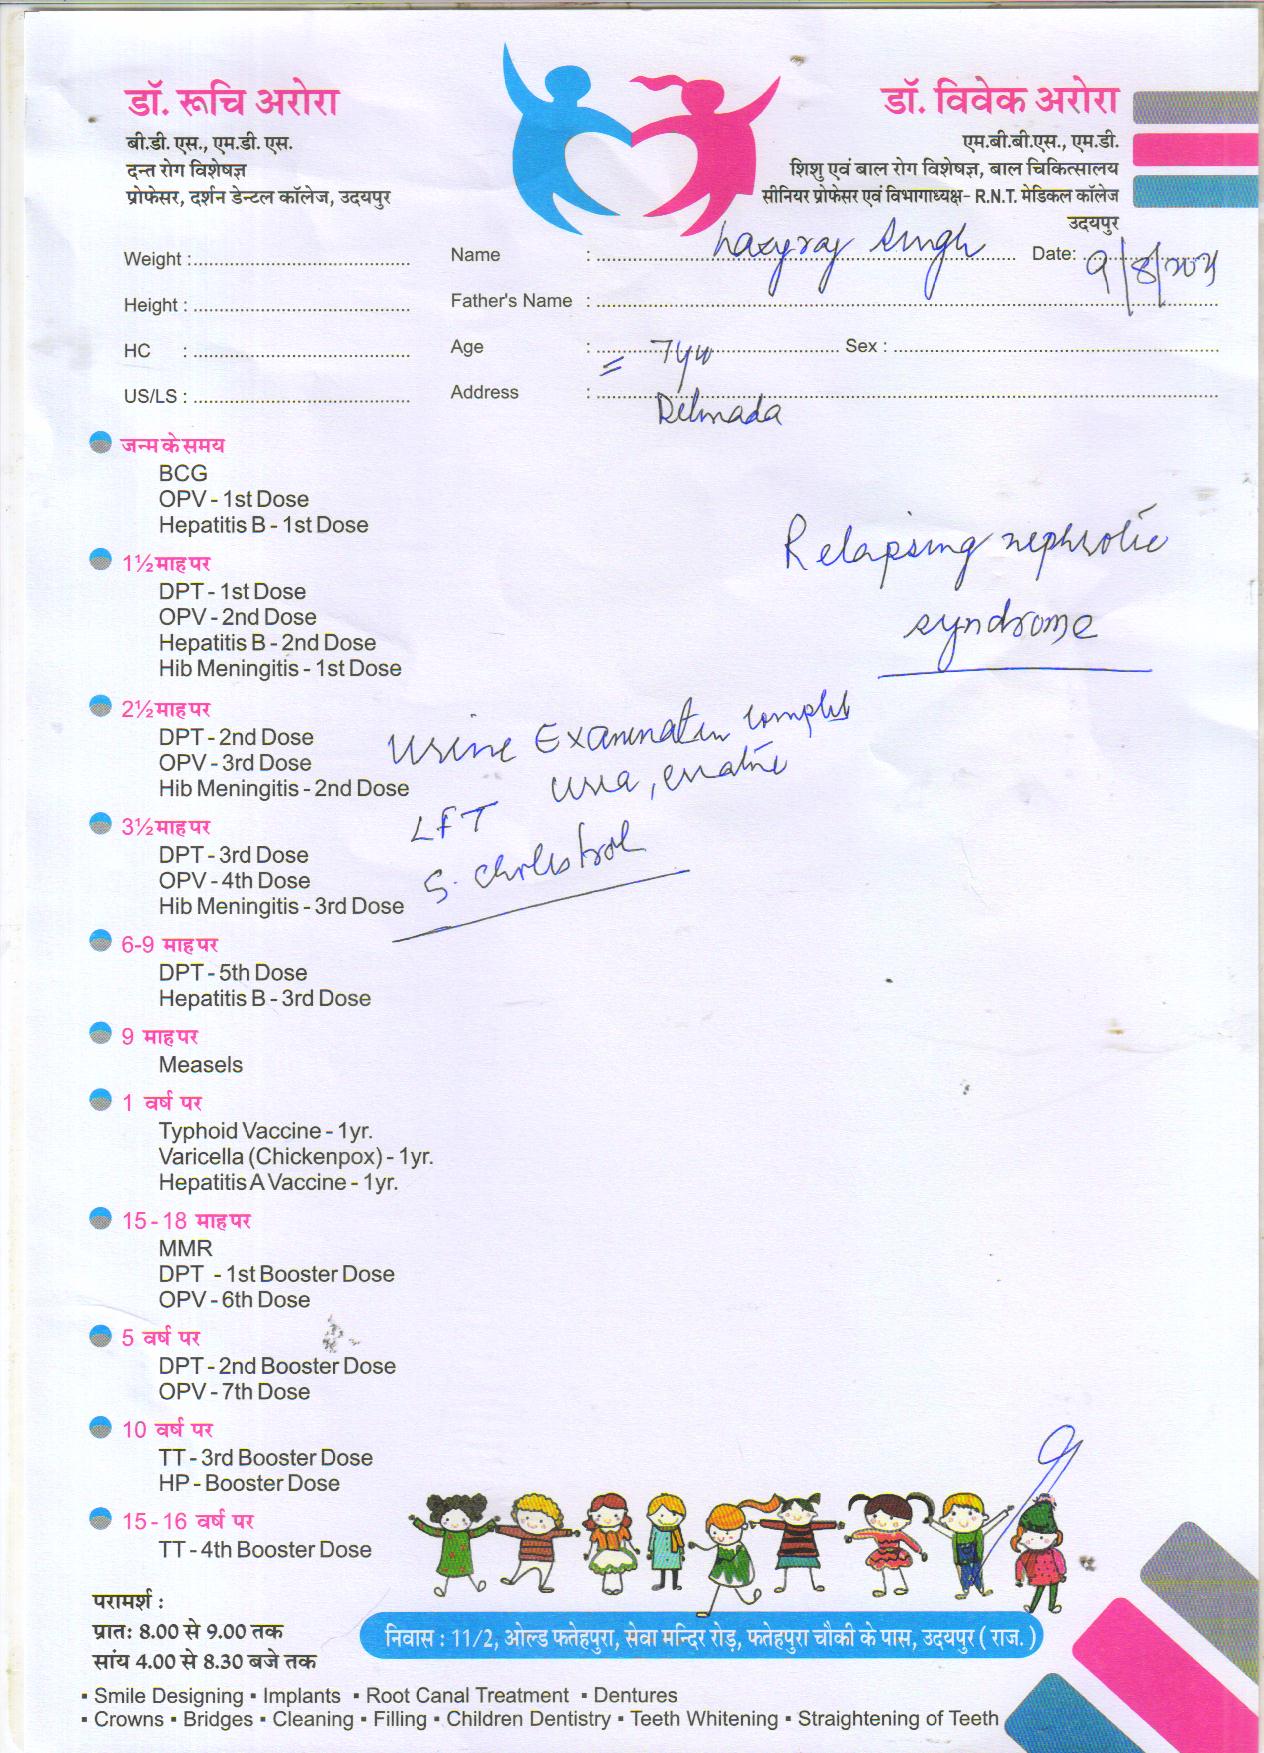 डॉ. रूचि अरोरा
बी.डी. एस., एम.डी. एस.
दन्त रोग विशेषज्ञ
प्रोफेसर, दर्शन डेन्टल कॉलेज, उदयपुर
डॉ. विवेक अरोरा
एम.बी.बी.एस., एम.डी.
शिशु एवं बाल रोग विशेषज्ञ, बाल चिकित्सालय
सीनियर प्रोफेसर एवं विभागाध्यक्ष- R.N.T. मेडिकल कॉलेज
उदयपुर
Weight :
Height :
HC :
US/LS :
Name : singh Date: 9/8/
Father's Name :
Age : = 7yr Sex :
Address : Delmada
Relapsing nephrotic
syndrome
जन्म के समय
BCG
OPV - 1st Dose
Hepatitis B - 1st Dose
1½ माह पर
DPT - 1st Dose
OPV - 2nd Dose
Hepatitis B - 2nd Dose
Hib Meningitis - 1st Dose
2½ माह पर
DPT - 2nd Dose
OPV - 3rd Dose
Hib Meningitis - 2nd Dose
3½ माह पर
DPT - 3rd Dose
OPV - 4th Dose
Hib Meningitis - 3rd Dose
Urine Examination
LFT
S. Cholistrol
6-9 माह पर
DPT - 5th Dose
Hepatitis B - 3rd Dose
9 माह पर
Measels
1 वर्ष पर
Typhoid Vaccine - 1yr.
Varicella (Chickenpox) - 1yr.
Hepatitis A Vaccine - 1yr.
15 - 18 माह पर
MMR
DPT - 1st Booster Dose
OPV - 6th Dose
5 वर्ष पर
DPT - 2nd Booster Dose
OPV - 7th Dose
10 वर्ष पर
TT - 3rd Booster Dose
HP - Booster Dose
15-16 वर्ष पर
TT - 4th Booster Dose
परामर्श :
प्रातः 8.00 से 9.00 तक
सांय 4.00 से 8.30 बजे तक
निवास : 11/2, ओल्ड फतेहपुरा, सेवा मन्दिर रोड़, फतेहपुरा चौकी के पास, उदयपुर ( राज. )
▪ Smile Designing ▪ Implants ▪ Root Canal Treatment ▪ Dentures
▪ Crowns ▪ Bridges ▪ Cleaning ▪ Filling ▪ Children Dentistry ▪ Teeth Whitening ▪ Straightening of Teeth